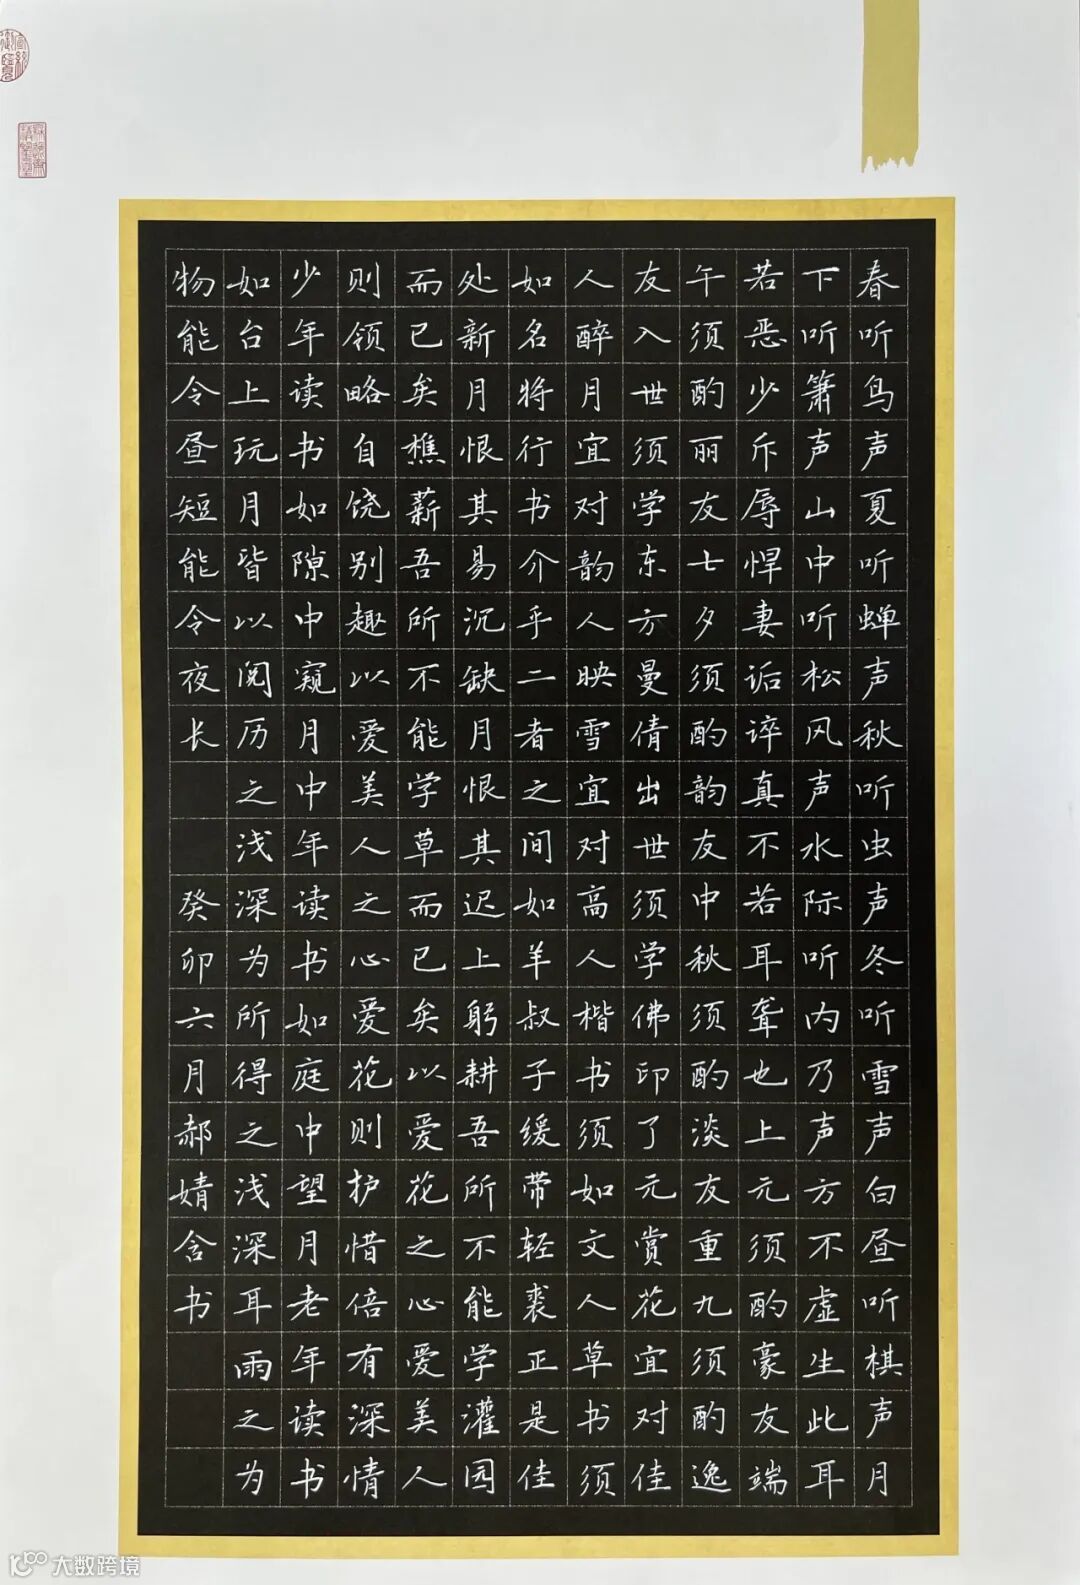 春听鸟声夏听蝉声秋听虫声冬听雪声白昼听棋声月
下听箫声山中听松风声水际听内乃声方不虚生此耳
若恶少斥辱悍妻诟谇真不若耳聋也上元须酌豪友端
午须酌丽友七夕须酌韵友中秋须酌淡友重九须酌逸
友入世须学东方曼倩出世须学佛印了元赏花宜对佳
人醉月宜对韵人映雪宜对高人楷书须如文人草书须
如名将行书介乎二者之间如羊叔子缓带轻裘正是佳
处新月恨其易沉缺月恨其迟上躬耕吾所不能学灌园
而已矣樵薪吾所不能学草而已矣以爱花之心爱美人
则领略自饶别趣以爱美人之心爱花则护惜倍有深情
少年读书如隙中窥月中年读书如庭中望月老年读书
如台上玩月皆以阅历之浅深为所得之浅深耳雨之为
物能令昼短能令夜长
癸卯六月郝婧含书
大数跨境